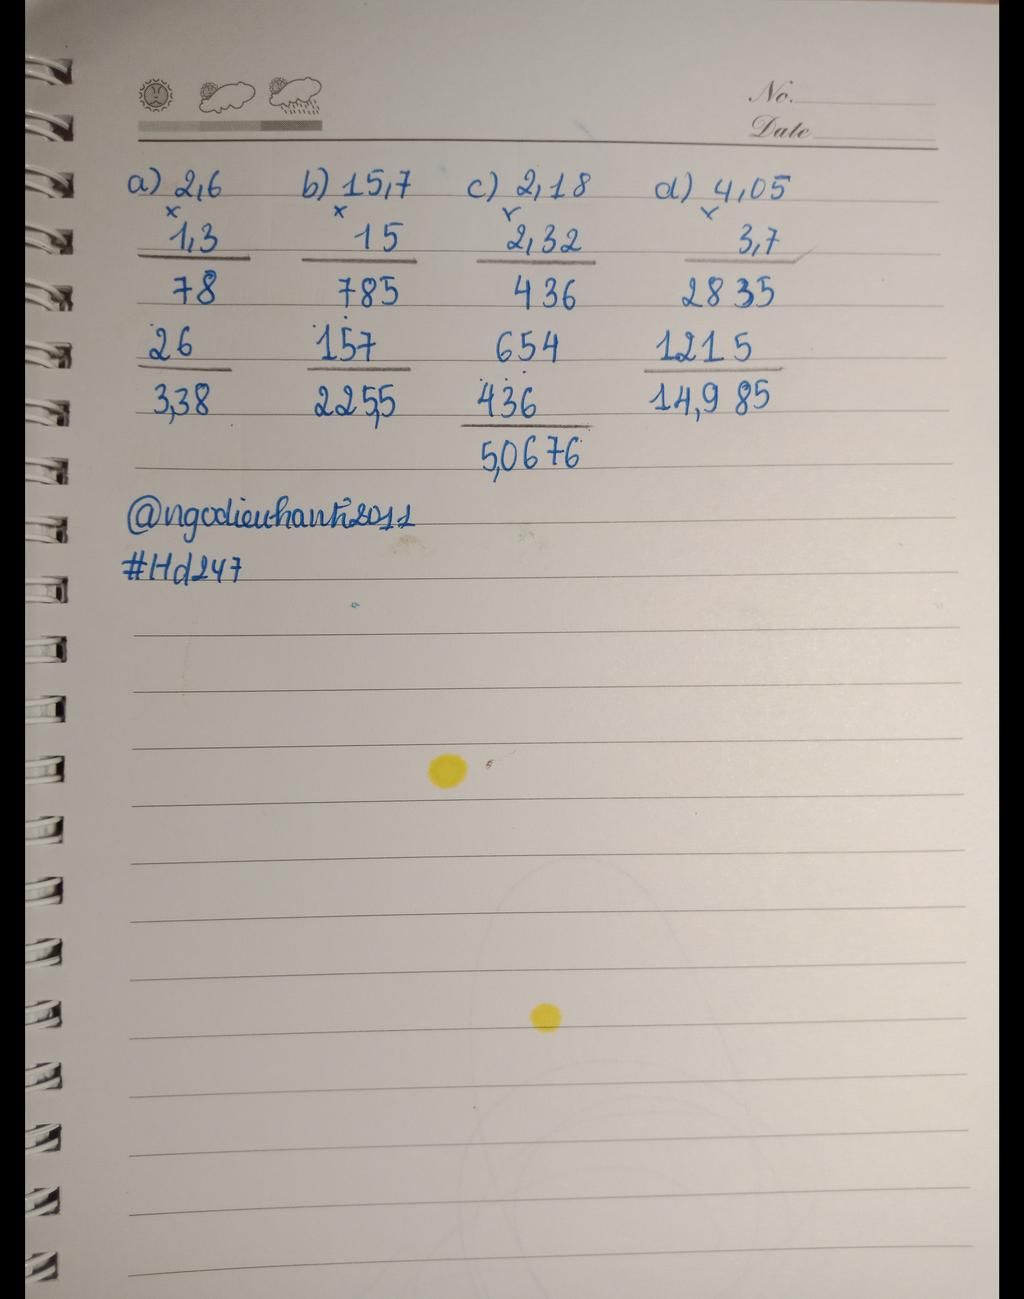 No.
Date
a) 2,6 b) 15,7 c) 2,18 d) 4,05
x x x x
1,3 15 2,32 3,7
78 785 436 2835
26 157 654 1215
3,38 225,5 436 14,985
5,0676
@ngodieuhanh2011
#Hd247